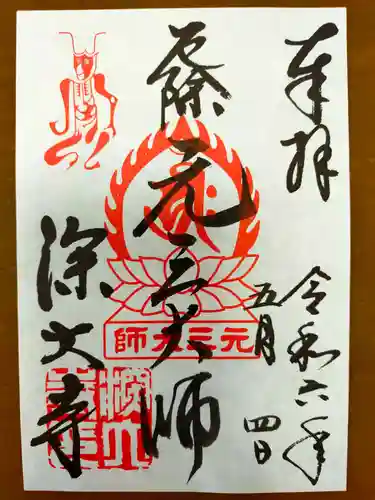 奉拝
令和六年
五月四日
厄除元三大師
深大寺
師大三元